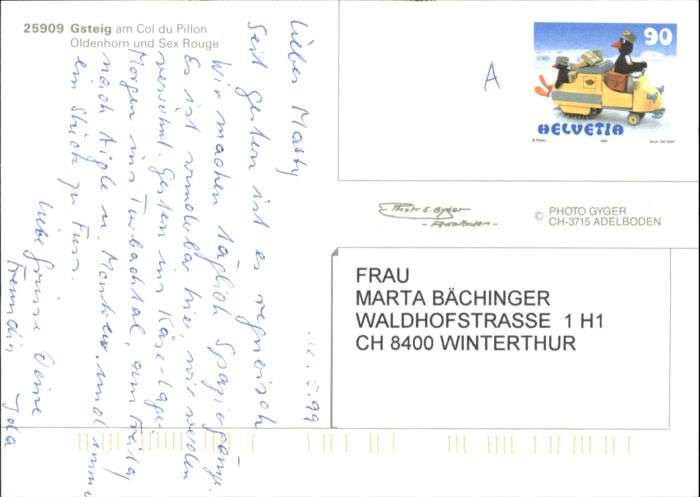 25909 Gsteig am Col du Pillon
Oldenhorn und Sex Rouge
Lieber Matty
Seit gestern ist es regnerisch
Wir machen täglich Spaziergänge.
Es ist wunderbar hier, wir werden
verwöhnt. Gestern ins Käse-Lager
Morgen ins Turbachtal, am Freitag
nach Aigle u. Montreux und immer
ein Stück zu Fuss.
Liebe Grüsse Deine
Freundin Ida
99
A
90
HELVETIA
Photo E. Gyger
- Adelboden -
© PHOTO GYGER
CH-3715 ADELBODEN
FRAU
MARTA BÄCHINGER
WALDHOFSTRASSE 1 H1
CH 8400 WINTERTHUR